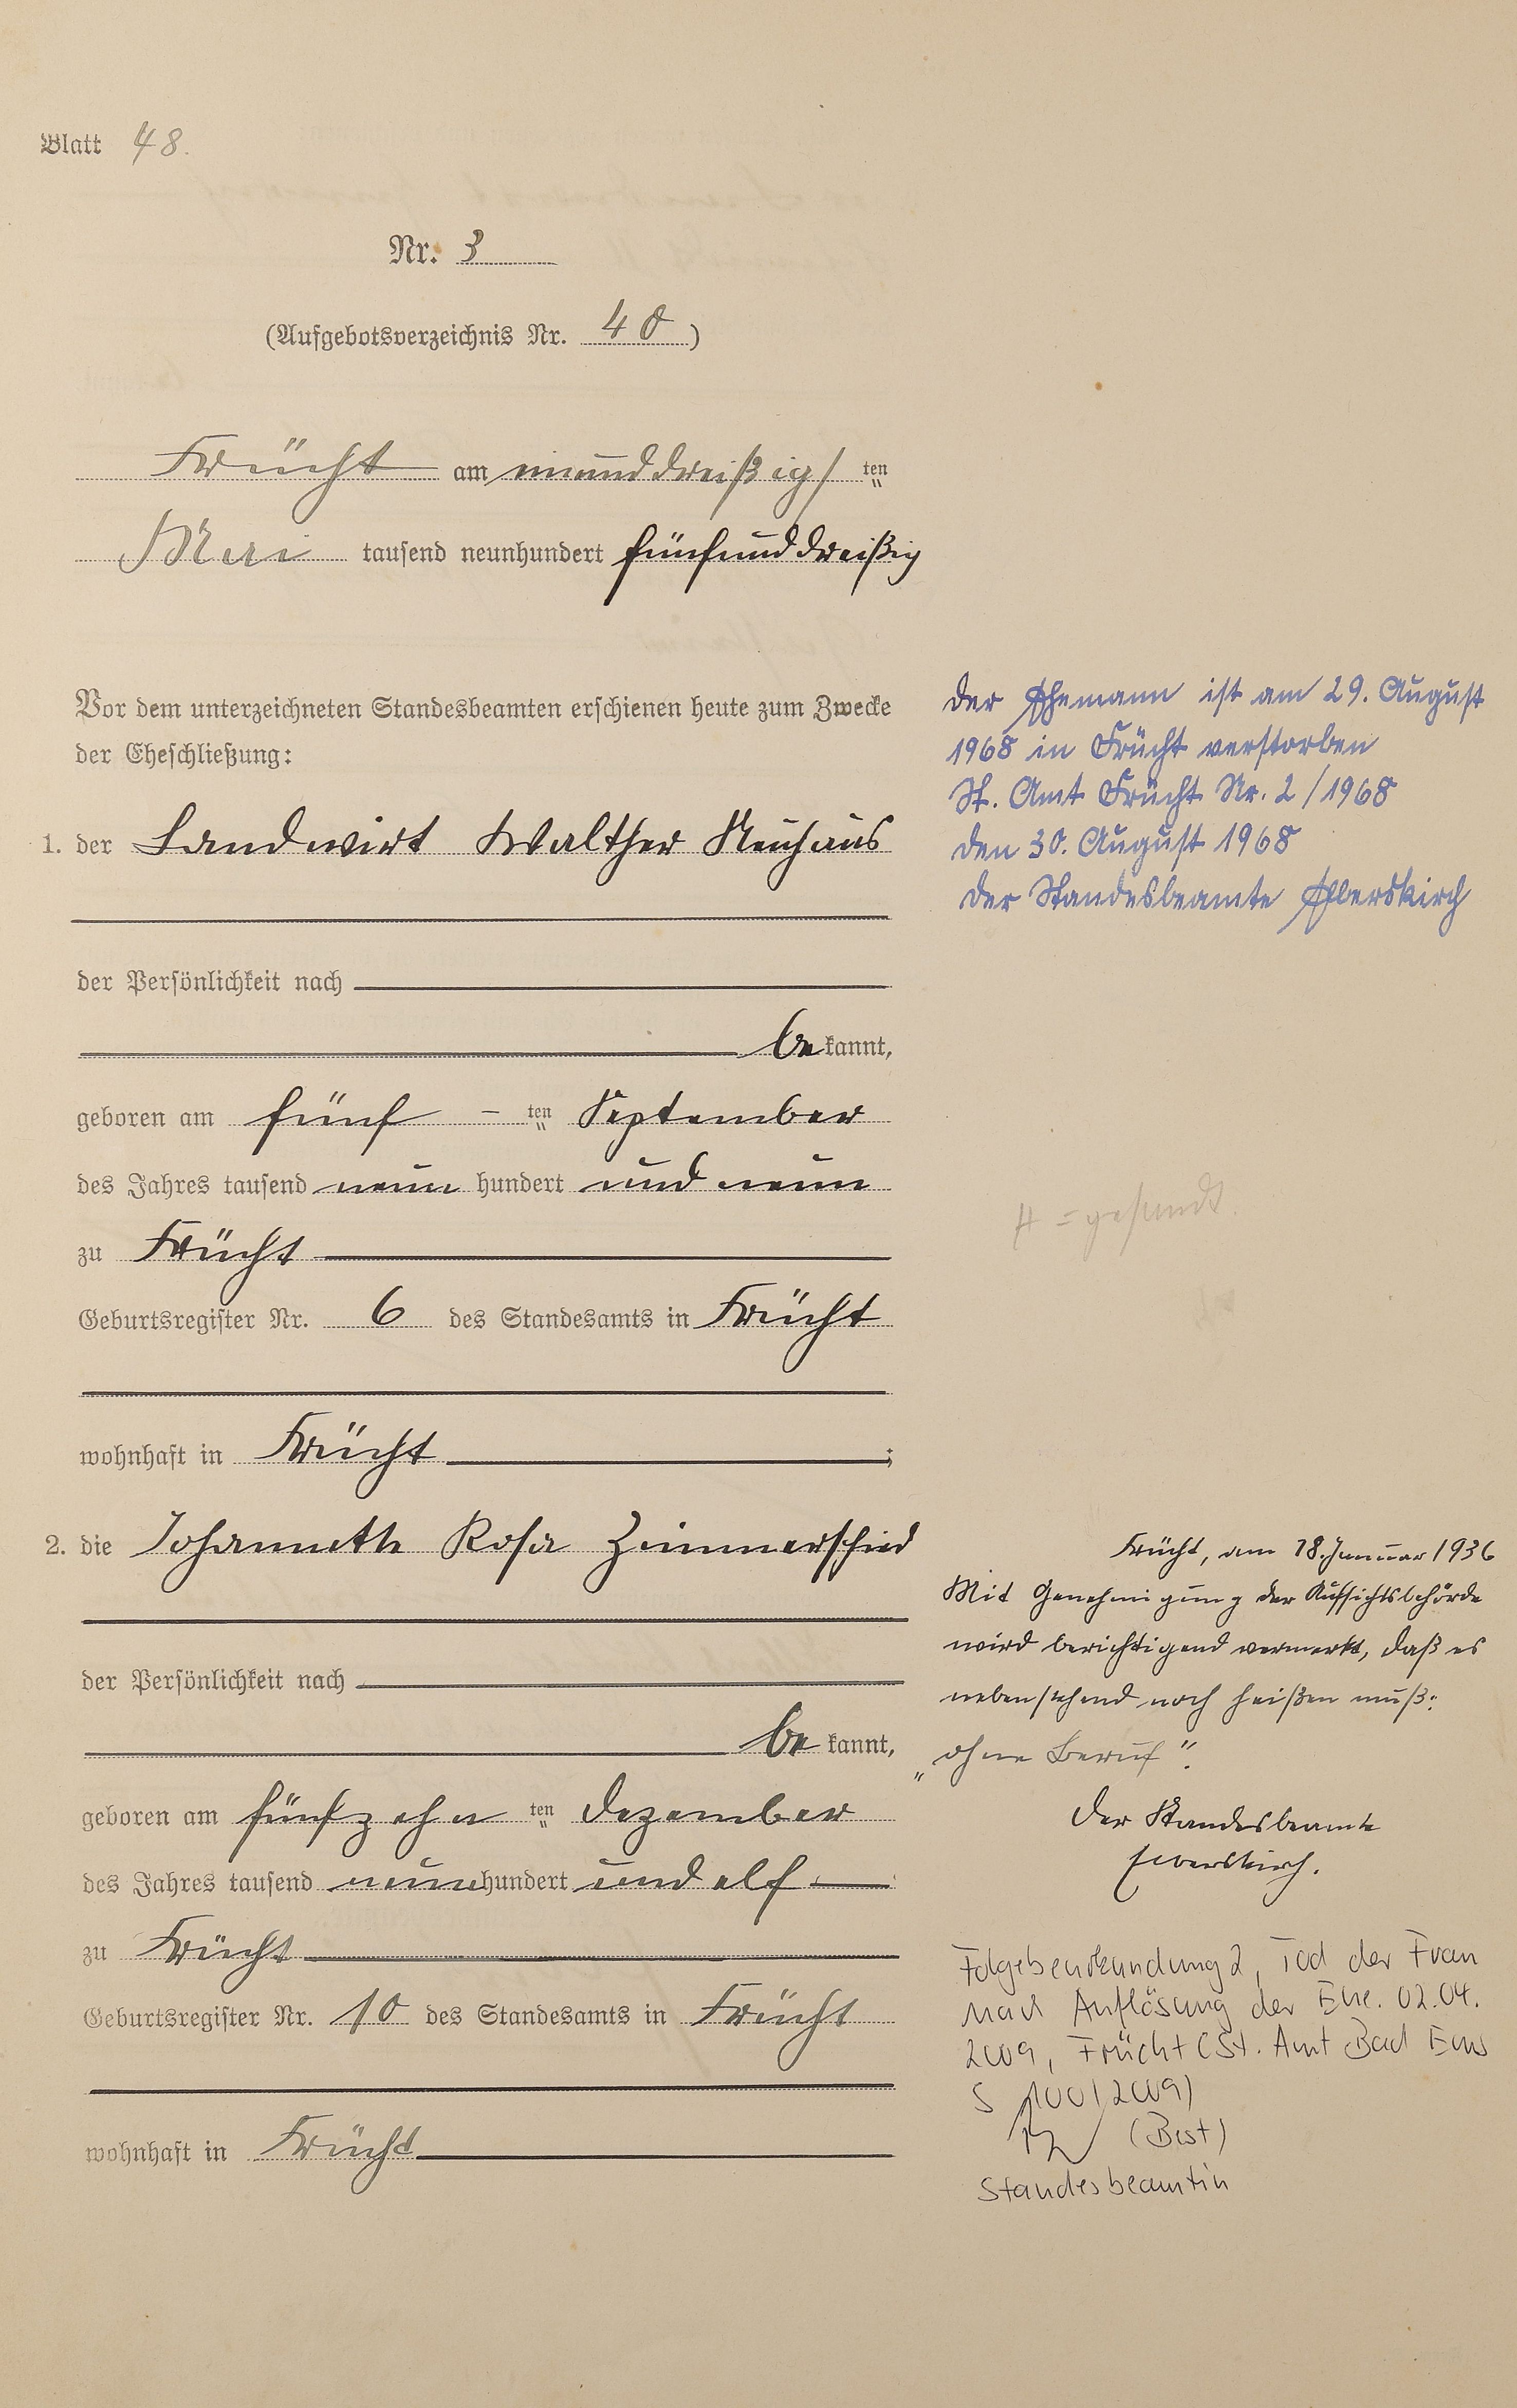 Blatt 48.
Nr. 3
(Aufgebotsverzeichnis Nr. 40)
Frücht am einunddreißigs ten
Mai tausend neunhundert fünfunddreißig
Vor dem unterzeichneten Standesbeamten erschienen heute zum Zwecke
der Eheschließung:
1. der Landwirt Walther Neuhaus
der Persönlichkeit nach
be kannt,
geboren am fünf - ten September
des Jahres tausend neun hundert und neun
zu Frücht
Geburtsregister Nr. 6 des Standesamts in Frücht
wohnhaft in Frücht ;
2. die Johannette Rosa Zimmerschied
der Persönlichkeit nach
be kannt,
geboren am fünfzehn ten Dezember
des Jahres tausend neun hundert und elf
zu Frücht
Geburtsregister Nr. 10 des Standesamts in Frücht
wohnhaft in Frücht
Der Ehemann ist am 29. August
1968 in Frücht verstorben
St. Amt Frücht Nr. 2/1968
Den 30. August 1968
Der Standesbeamte Eberskirch
= gesund.
Frücht, am 18. Januar 1936
Mit Genehmigung der Aufsichtsbehörde
wird berichtigend vermerkt, daß es
nebenstehend noch heißen muß:
„ohne Beruf".
Der Standesbeamte
Ewerskirch.
Folgebeurkundung 2, Tod der Frau
nach Auflösung der Ehe. 02.04.
2009, Frücht (St. Amt Bad Ems
S 100/2009)
(Best)
Standesbeamtin